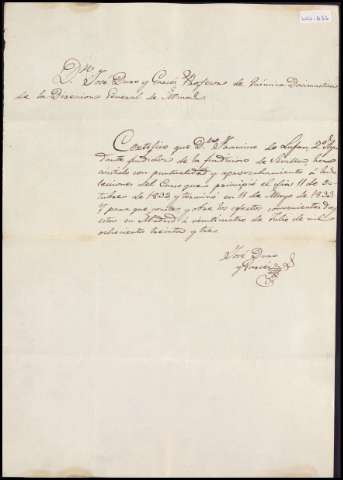 Dn. José Duro y Garcés Profesor de Química Docimastica
de la Direccion General de Minas
Certifico que Dn. Maximino de
dante fundidor de la fundicion de
asistido con puntualidad y aprovechamiento á las
lecciones del Curso que principió el dia 11 de Oc-
tubre de 1832 y terminó en 11 de Mayo de 1833
Y para que conste y obre los efectos convenientes doy
este en Madrid á veintitres de Julio de mil
ochocientos treinta y tres
José Duro
y Garcés